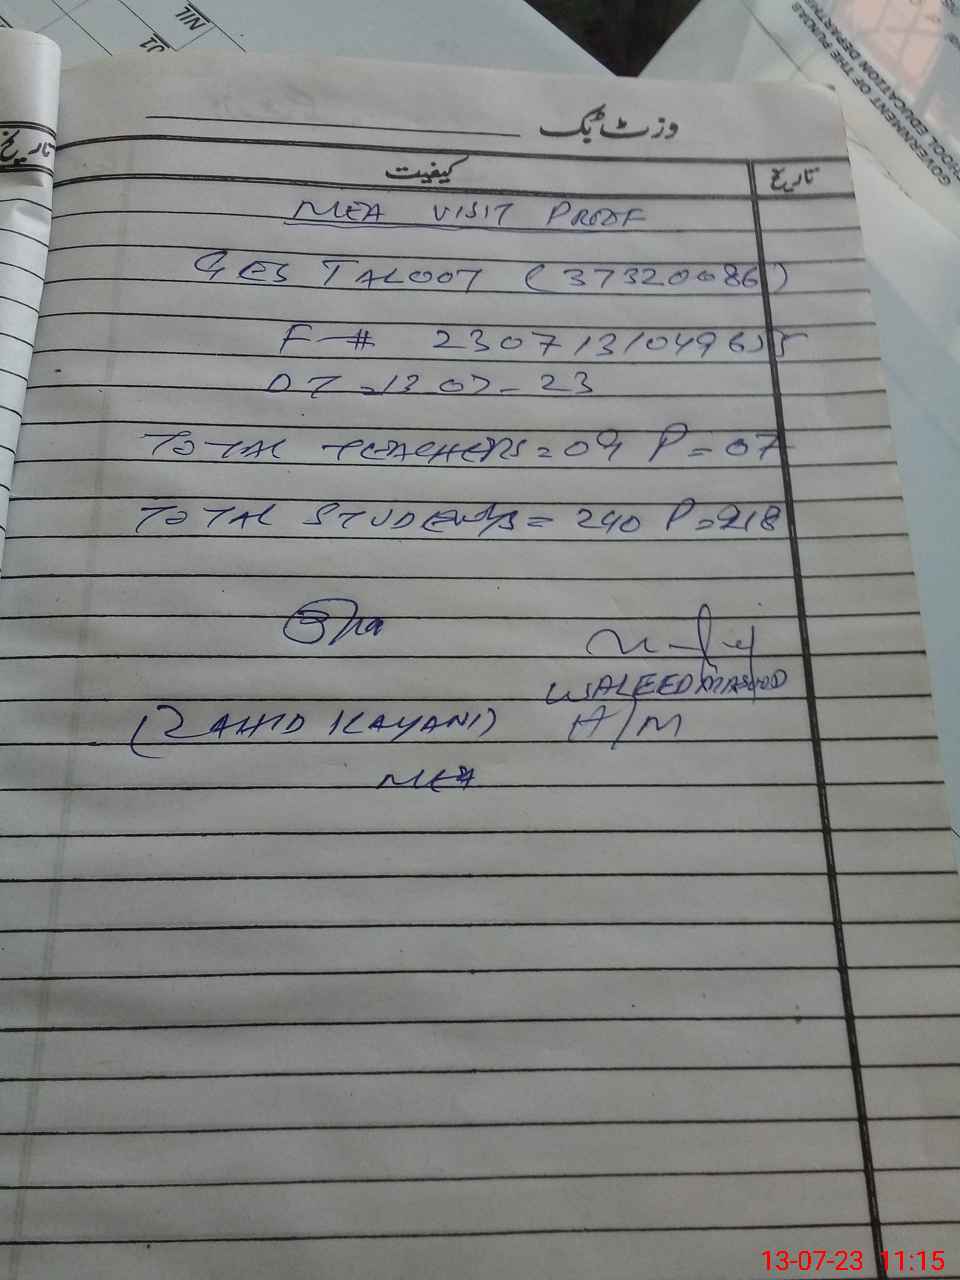 NIL
GOVERNMENT OF THE PUNJAB
SCHOOL EDUCATION DEPARTME
وزٹ بک
تاریخ
کیفیت
تاریخ
MEA VISIT PROOF
GES TALOOT (37320086)
F-#
DT = 13-07-23
TOTAL TEACHERS = 09 P = 07
TOTAL STUDENTS = 240 P = 218
WALEED MASOOD
(ZAHID KAYANI) A/M
MEA
13-07-23 11:15